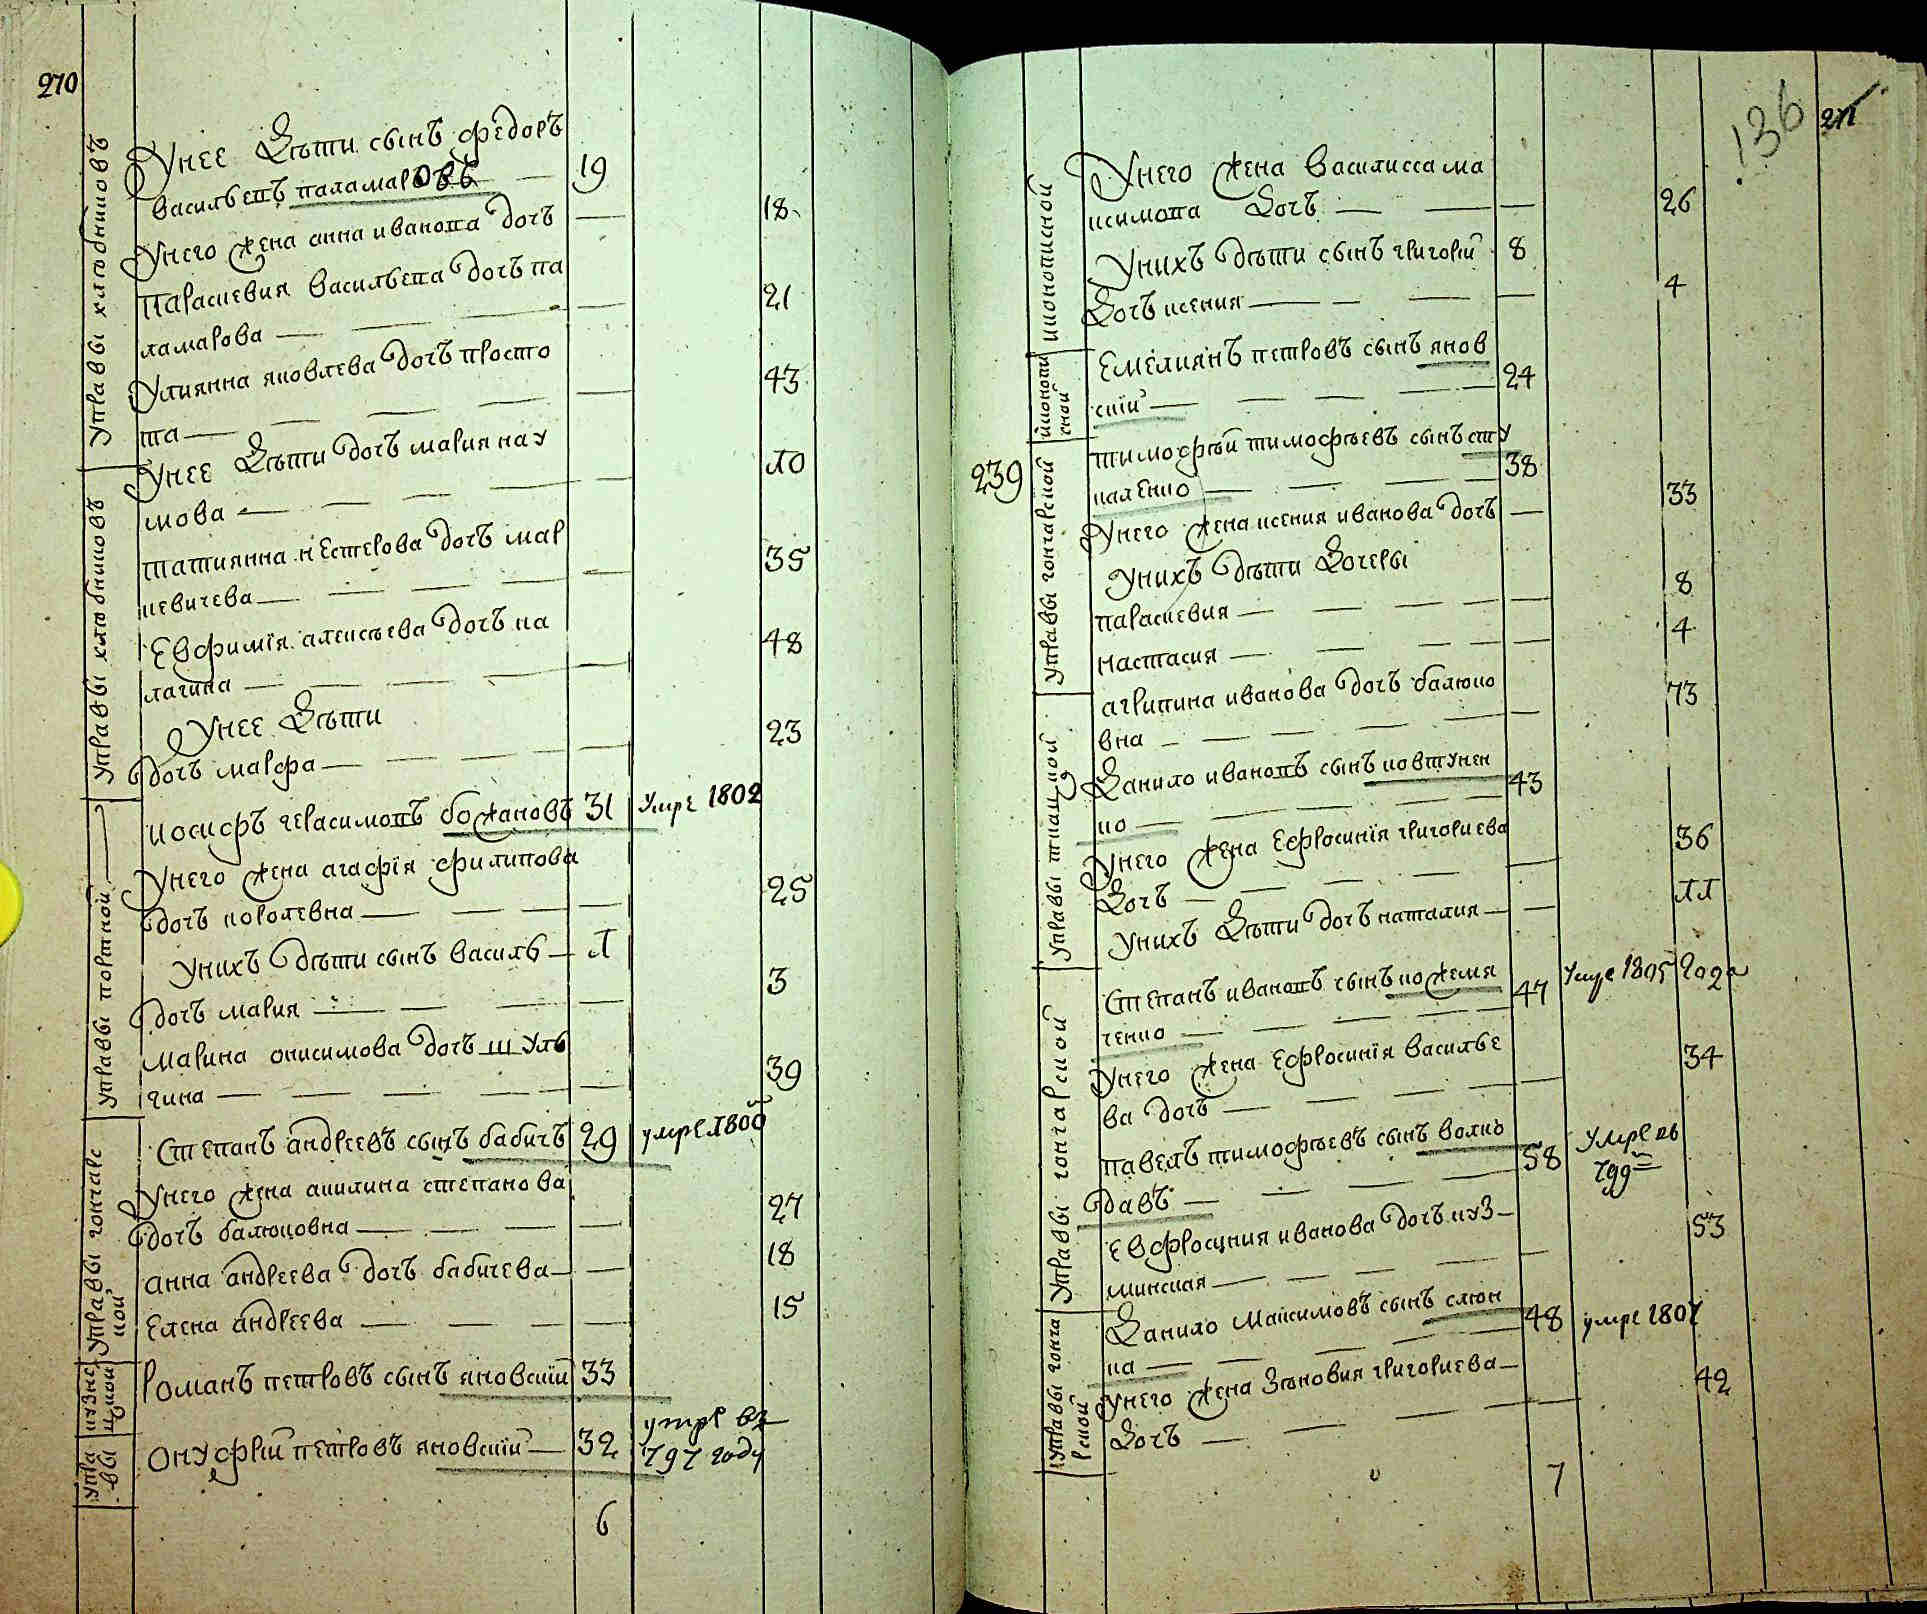 270
Управы хлѣбниковъ
Унее Дѣти сынъ федоръ
васильевъ паламаровъ — 19
Унего жена анна иванова дочь — 18
Параскевия васильева дочь па
ламарова — 21
Улиянна яковлева дочь просто
та — 43
Унее Дѣти дочь мария нау
мова — 10
Управы хлѣбниковъ
татиянна нестерова дочь мар
кевичева — 35
Евфимїя алексѣева дочь ка
лачина — 48
Унее Дѣти
дочь марфа — 23
Управы портной
иосифъ герасимовъ божановъ 31 Умре 1802
Унего жена агафїя филипова
дочь королевна — 25
Унихъ дѣти сынъ василь — 1
дочь мария — 3
марина онисимова дочь шуль
гина — 39
Управы гончарс
кой
Степанъ андреевъ сынъ бабичь 29 умре 1800
Унего жена акилина степанова
дочь балюковна — 27
анна андреева дочь бабичева — 18
Елена андреева — 15
кузне
цкой
романъ петровъ сынъ яновскїи 33
упра
вы
онуфрїй петровъ яновскїй — 32 умре въ
797 году
6
136
271
иконописной
Унего жена Василисса ма
ксимова Дочь — 26
Унихъ дѣти сынъ григорїй 8
Дочь ксения — 4
йконопи
сной
Емелиянъ петровъ сынъ янов
скїй — 24
239
Управы гончарской
тимофѣй тимофѣевъ сынъ сту
каленко — 38
Унего жена ксения иванова дочь — 33
Унихъ дѣти Дочеры
параскевия — 8
настасия — 4
Управы ткацкой
агрипина иванова дочь балюко
вна — 73
Данило ивановъ сынъ ковтунен
ко — 43
Унего жена Ефросинїя григориева
Дочь — 36
Унихъ Дѣти дочь наталия — 11
Управы гончарской
Степанъ ивановъ сынъ кожемя 47 Умре 1805 года
ченко —
Унего жена Ефросинїя василье
ва дочь — 34
павелъ тимофѣевъ сынъ волко
давъ — 58 Умре въ
799
Евфросиния иванова дочь куз
минская — 53
Управы гонча
рской
Данило Максимовъ сынъ слюн
ка — 48 умре 1807
Унего жена Зѣновия григориева
Дочь — 42
7